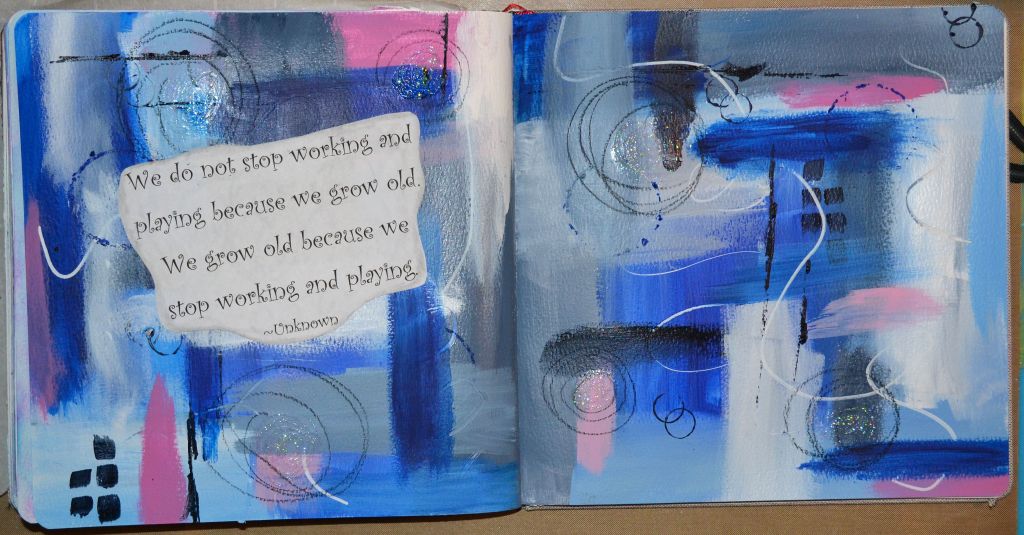 We do not stop working and
playing because we grow old.
We grow old because we
stop working and playing.
~Unknown